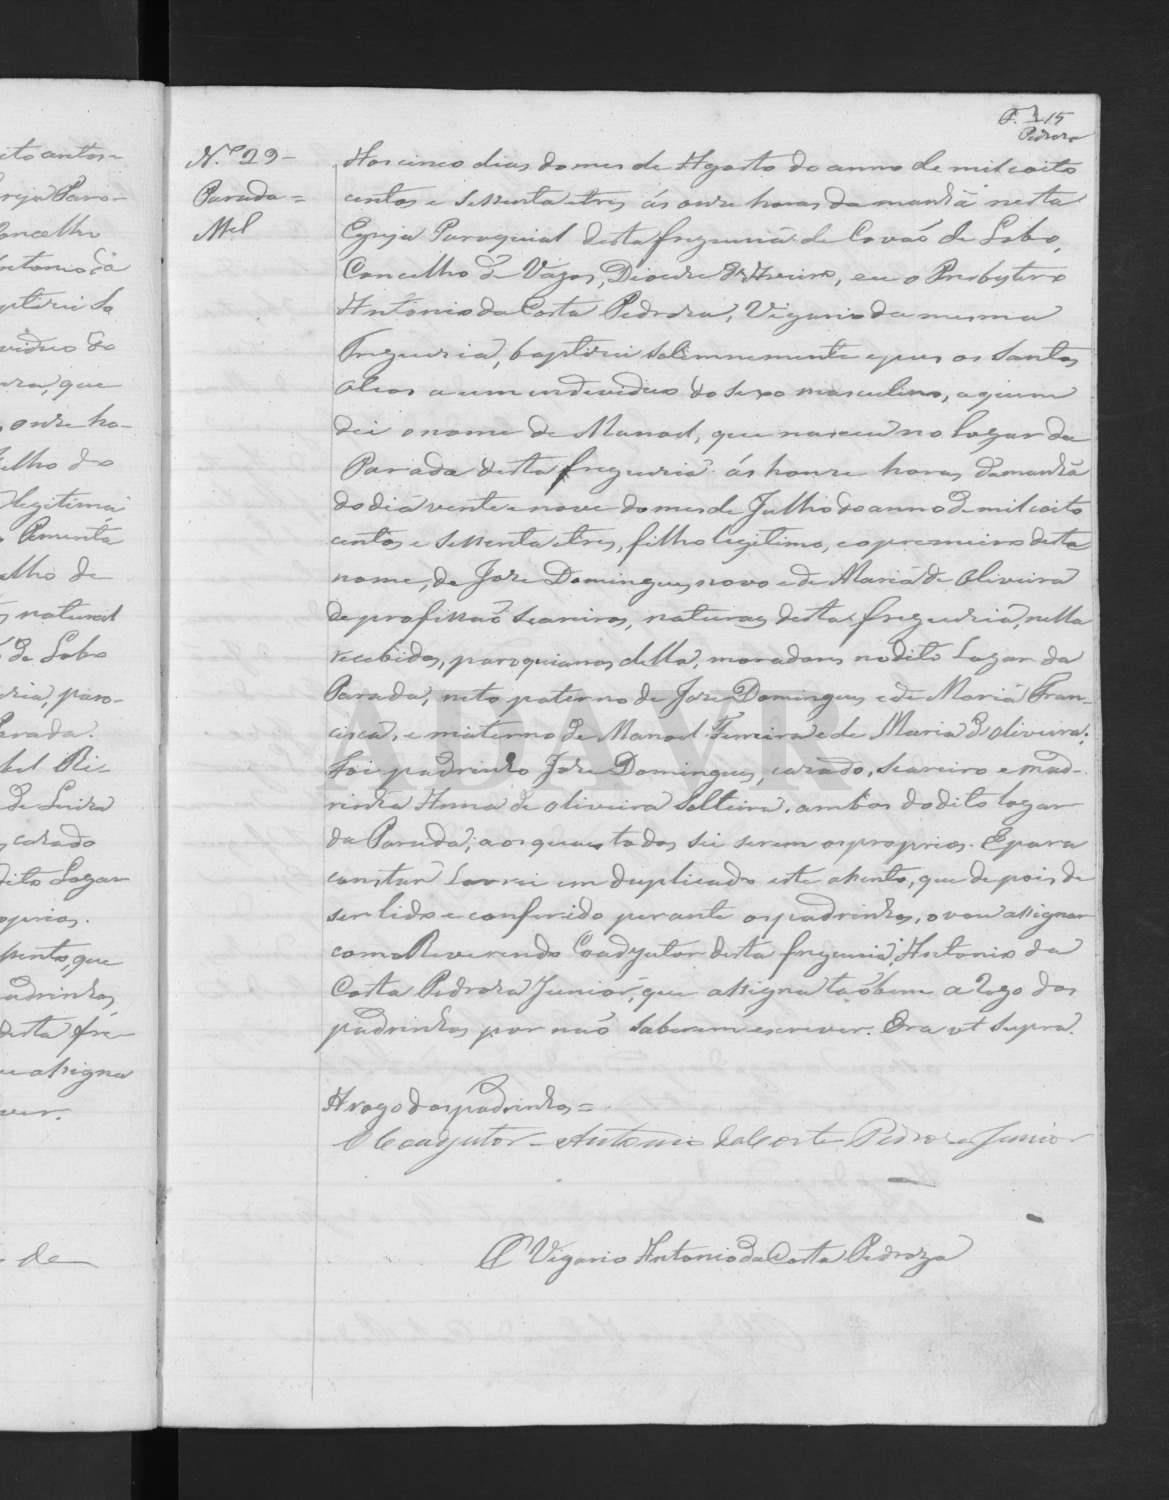 F. 15
Pedroza
N.º 29-
Parada=
Mel
Aos cinco dias do mes de Agosto do anno de mil e oito
centos e sessenta e tres ás onze horas da manhã nesta
Egreja Paroquial desta freguezia de Covaõ de Lobo,
Concelho de Vagos, Diocese d'Aveiro, eu o Presbytero
Antonio da Costa Pedroza, Vigario da mesma
Freguezia, baptizei solemnemente e pus os Santos
Oleos a um endeviduo do sexo masculino, a quem
dei o nome de Manoel, que nasceu no lugar da
Parada desta freguezia ás honze horas da manhã
do dia vente e nove do mes de Julho do anno de mil e oito
centos e sessenta e tres, filho legitimo, e o premeiro deste
nome, de Joze Domingues novo e de Maria de Oliveira
de profissaõ seareiros, naturaes desta freguezia, nella
recebidos, paroquianos della, moradores no dito Lugar da
Parada, neto paterno de Joze Domingues e de Maria Fran-
cisca, e materno de Manoel Ferreira e de Maria d'Oliveira.
Foi padrinho Joze Domingues, cazado, seareiro e mad-
rinha Anna de Oliveira Solteira, ambos do dito lugar
da Parada, aos quaes todos sei serem os proprios. E para
constar Lavrei em duplicado este assento, que depois de
ser lido e conferido perante os padrinhos, o vou assignar
com o Reverendo Coadjutor desta freguezia, Antonio da
Costa Pedroza Junior, que assigna taõbem a rogo dos
padrinhos por naõ saberem escrever. Era ut supra.
A rogo dos padrinhos=
O Coadjutor - Antonio da Costa Pedroza Junior
O Vigario Antonio da Costa Pedroza
ADAVR
ito antos=
reja Paro-
oncelho
ntonio da
ptizei So
viduo do
ra, que
onze ho-
ulho do
legitima
Pimenta
lho de
natural
de Lobo
zia, paro-
arada.
bel Ri-
de Luiza
cazado
dito Lugar
oprios.
sento, que
adrinhos,
desta fre-
e assigna
ver.
de